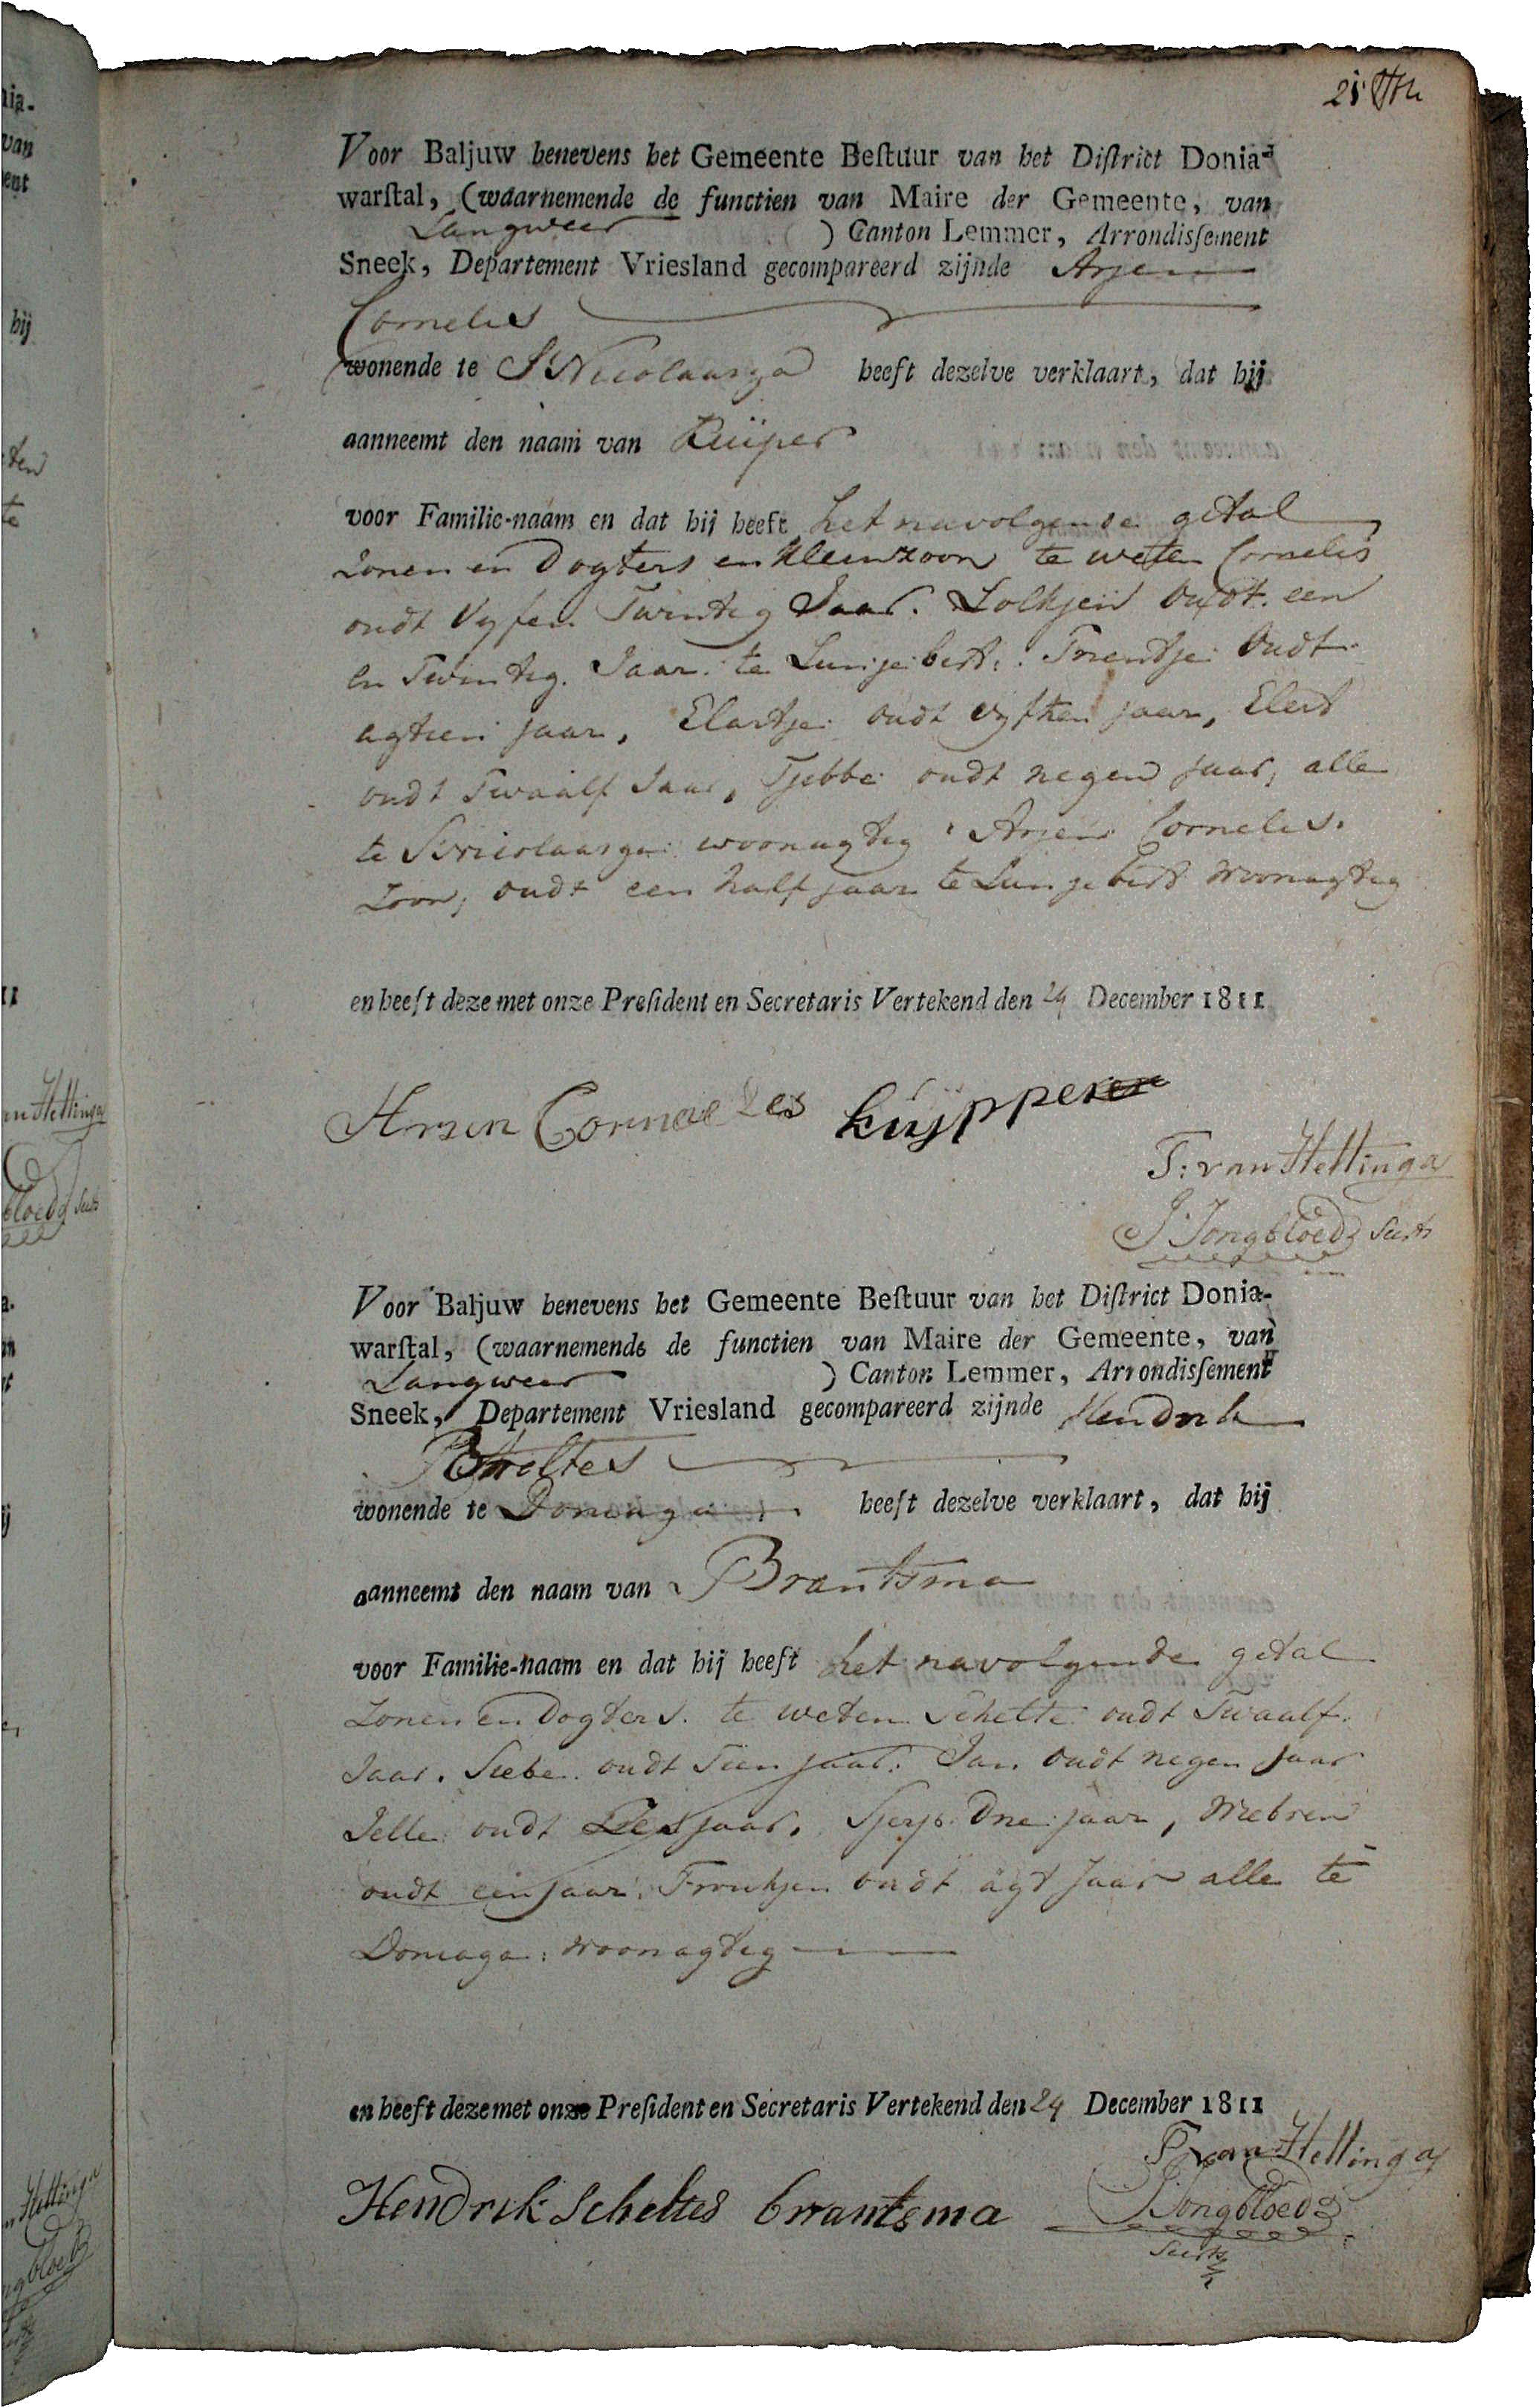 25
Voor Baljuw benevens het Gemeente Beſtuur van het Diſtrict Donia-
warſtal, (waarnemende de functien van Maire der Gemeente, van
Langweer ) Canton Lemmer, Arrondisſement
Sneek, Departement Vriesland gecompareerd zijnde Arjen
Cornelis
wonende te St Nicolaasga heeft dezelve verklaart, dat hij
aanneemt den naam van Kuiper
voor Familie-naam en dat hij heeft het navolgende getal
Zonen en Dogters en kleinzoon te weten Cornelis
oudt Vyf en Twintig Jaar. Lolkjen Oudt een
en Twintig Jaar te Lunjebert. Trientje Oudt
agtien jaar, Elartje oudt vyftien jaar, Elert
oudt Twaalf Jaar, Tjebbe oudt negen jaar, alle
te St Nicolaasga woonagtig Arjen Cornelis
zoon, oudt een half jaar te Lunjebert woonagtig
en heeft deze met onze Preſident en Secretaris Vertekend den 24 December 1811
Arjen Cornelles kuijpper
T: van Hettinga
J: Jongbloed Secrts
Voor Baljuw benevens het Gemeente Beſtuur van het Diſtrict Donia-
warſtal, (waarnemende de functien van Maire der Gemeente, van
Langweer ) Canton Lemmer, Arrondisſement
Sneek, Departement Vriesland gecompareerd zijnde Hendrik
Scheltes
wonende te Doniaga heeft dezelve verklaart, dat hij
aanneemt den naam van Brantsma
voor Familie-naam en dat hij heeft het navolgende getal
Zonen en Dogters te weten Schelte oudt Twaalf
Jaar. Siebe oudt Tien jaar. Jan oudt negen jaar
Jelle oudt Zes jaar, Sjerp Drie jaar, Wiebren
oudt een jaar. Froukjen oudt agt Jaar alle te
Doniaga woonagtig
en heeft deze met onze Preſident en Secretaris Vertekend den 24 December 1811
T van Hettinga
Hendrik scheltes brrantsma J: Jongbloed
Secrts